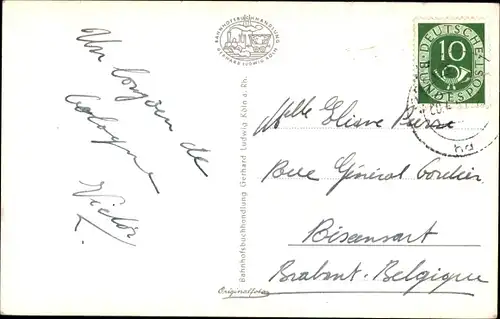 Un longien de
Cologne
Victor
BAHNHOFSBUCHHANDLUNG
GERHARD LUDWIG KÖLN
Bahnhofsbuchhandlung Gerhard Ludwig Köln a. Rh.
Originalfoto
DEUTSCHE BUNDESPOST
10
Mlle Eliane Pierre
Rue Général Cordier
Bisensart
Brabant. Belgique